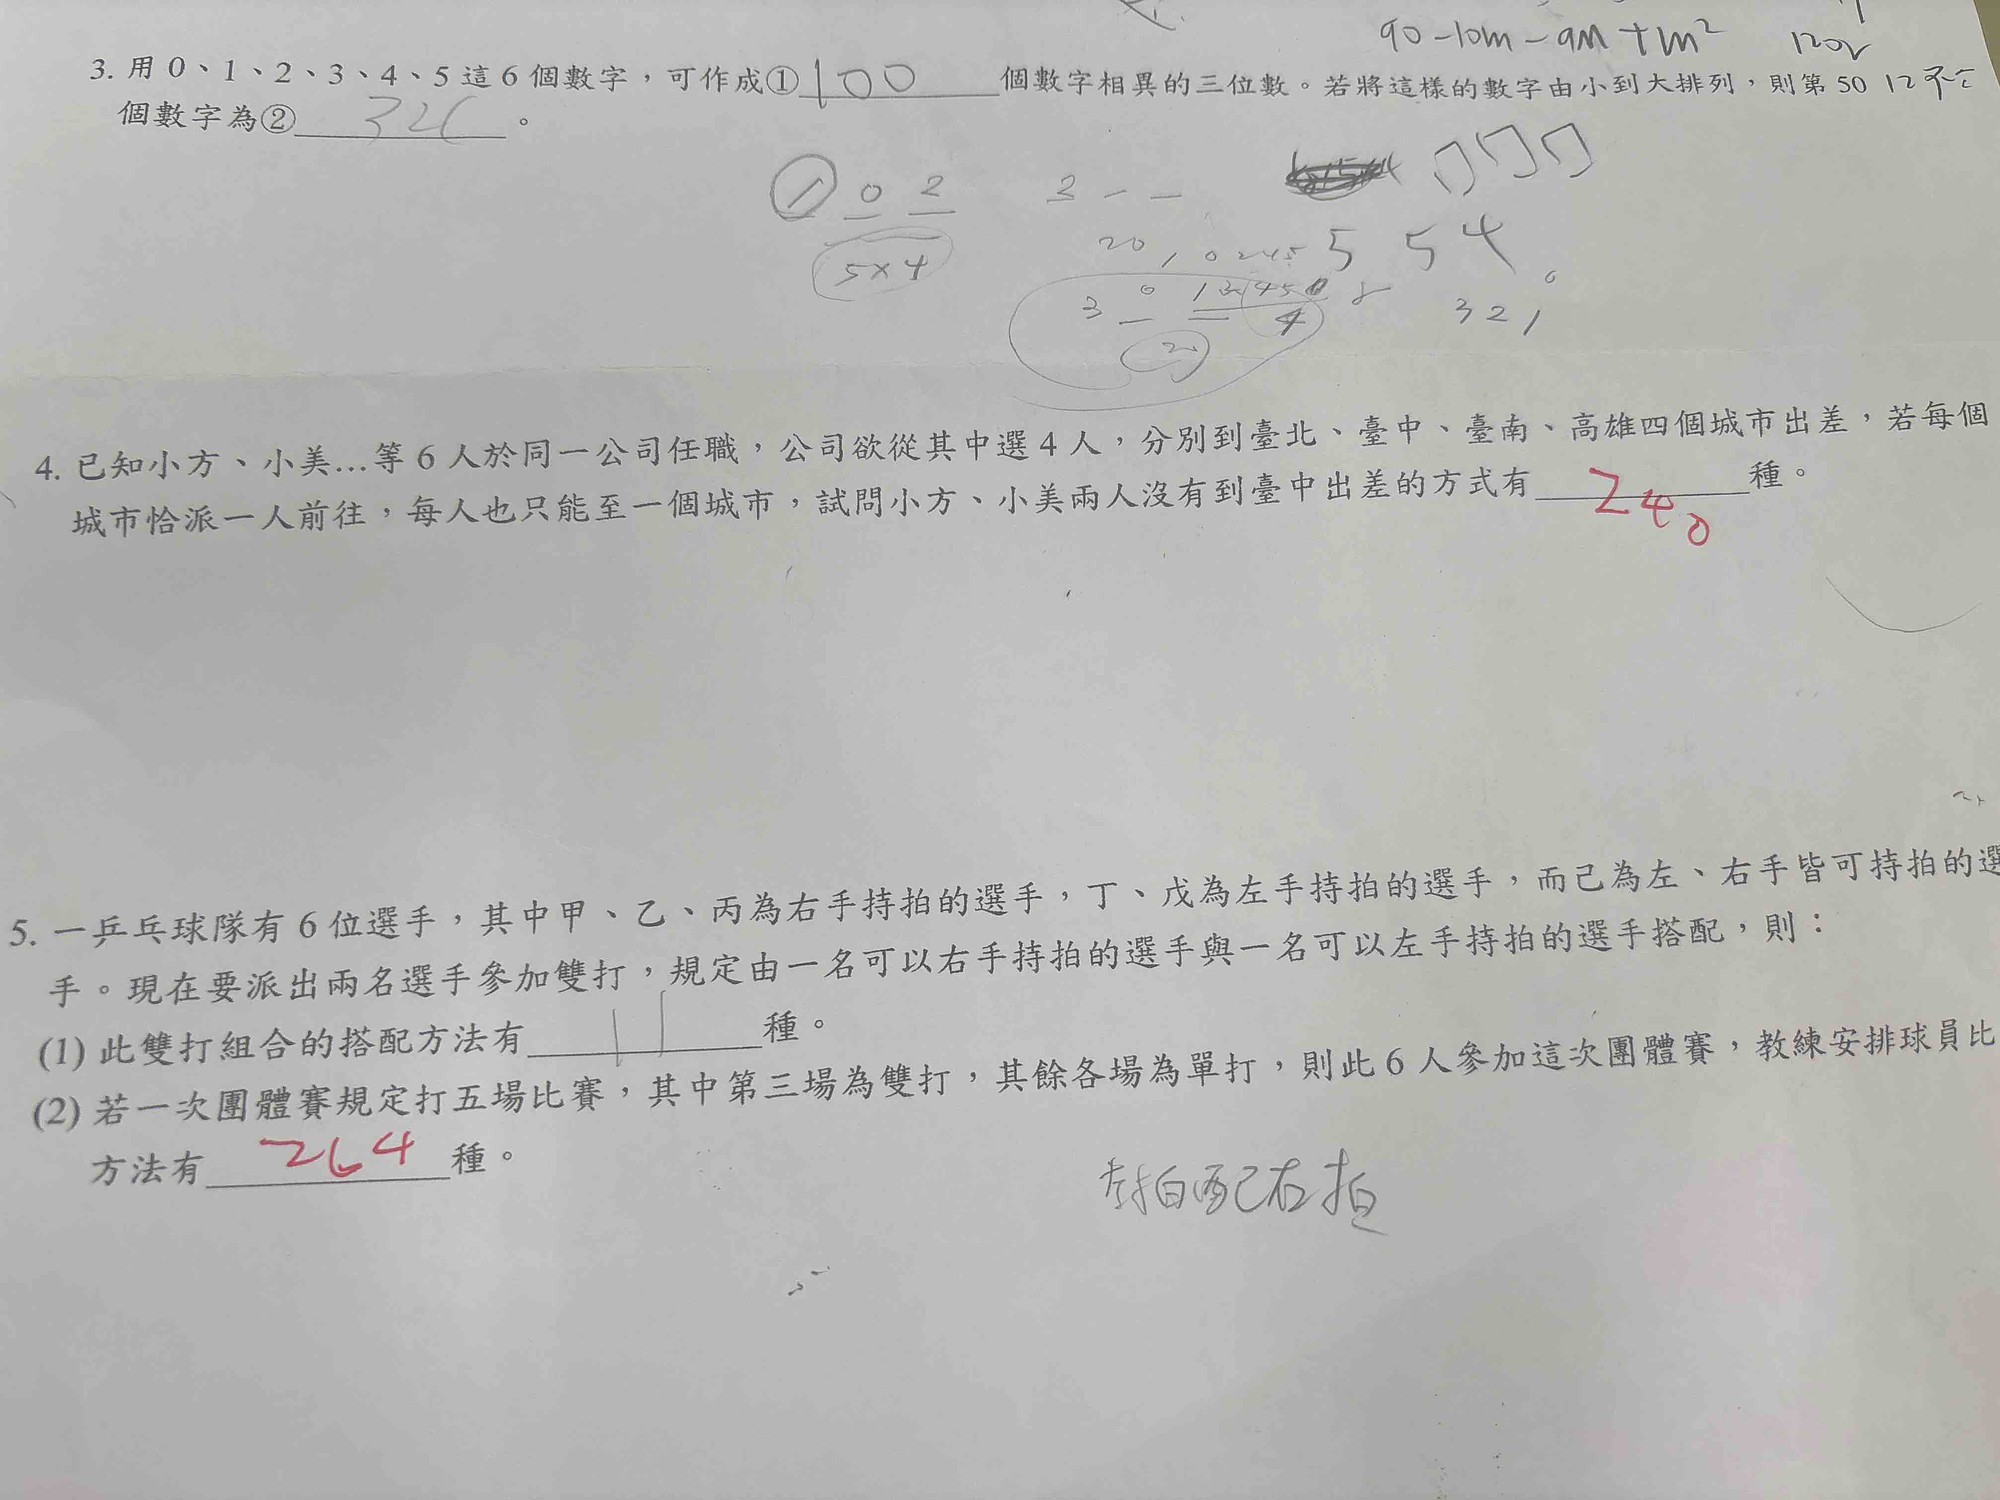 90-10m-9m+m²
120
3. 用0、1、2、3、4、5這6個數字，可作成①100個數字相異的三位數。若將這樣的數字由小到大排列，則第50 12
個數字為②＿＿＿。
1 0 2
3 － －
5×4
20
5 5 4
3
0
4
321
4. 已知小方、小美…等6人於同一公司任職，公司欲從其中選4人，分別到臺北、臺中、臺南、高雄四個城市出差，若每個
城市恰派一人前往，每人也只能至一個城市，試問小方、小美兩人沒有到臺中出差的方式有240種。
5. 一乒乓球隊有6位選手，其中甲、乙、丙為右手持拍的選手，丁、戊為左手持拍的選手，而己為左、右手皆可持拍的選
手。現在要派出兩名選手參加雙打，規定由一名可以右手持拍的選手與一名可以左手持拍的選手搭配，則：
(1) 此雙打組合的搭配方法有11種。
(2) 若一次團體賽規定打五場比賽，其中第三場為雙打，其餘各場為單打，則此6人參加這次團體賽，教練安排球員比
方法有264種。
拍配右拍